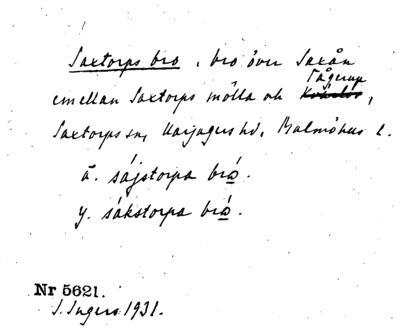 Saxtorps bro, bro över Saxån
emellan Saxtorps mölla och Tågerup,
Saxtorps sn, Harjagers hd, Malmöhus l.
ä. sájstorpa bro̲.
y. sákstorpa bro̲.
Nr 5621.
I. Ingers 1931.